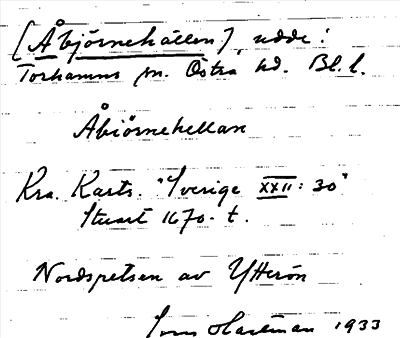 [Åbjörnehällen], udde:
Torhamns sn. Östra hd. Bl. l.
Åbiörnehellan
Kra. Karts. "Sverige XXII: 30"
Stuart 1670-t.
Nordspetsen av Ytterön
Hartman 1933